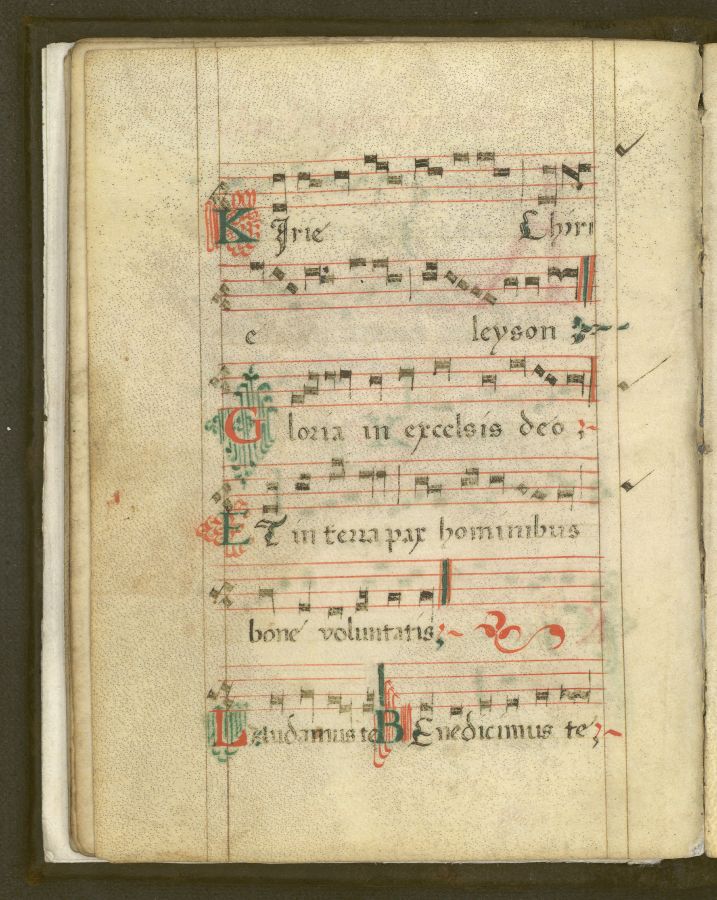 KJrie Chiri
e leyson
Gloria in excelsis deo
ET in terra pax hominibus
bone voluntatis
Laudamus te BEnedicimus te